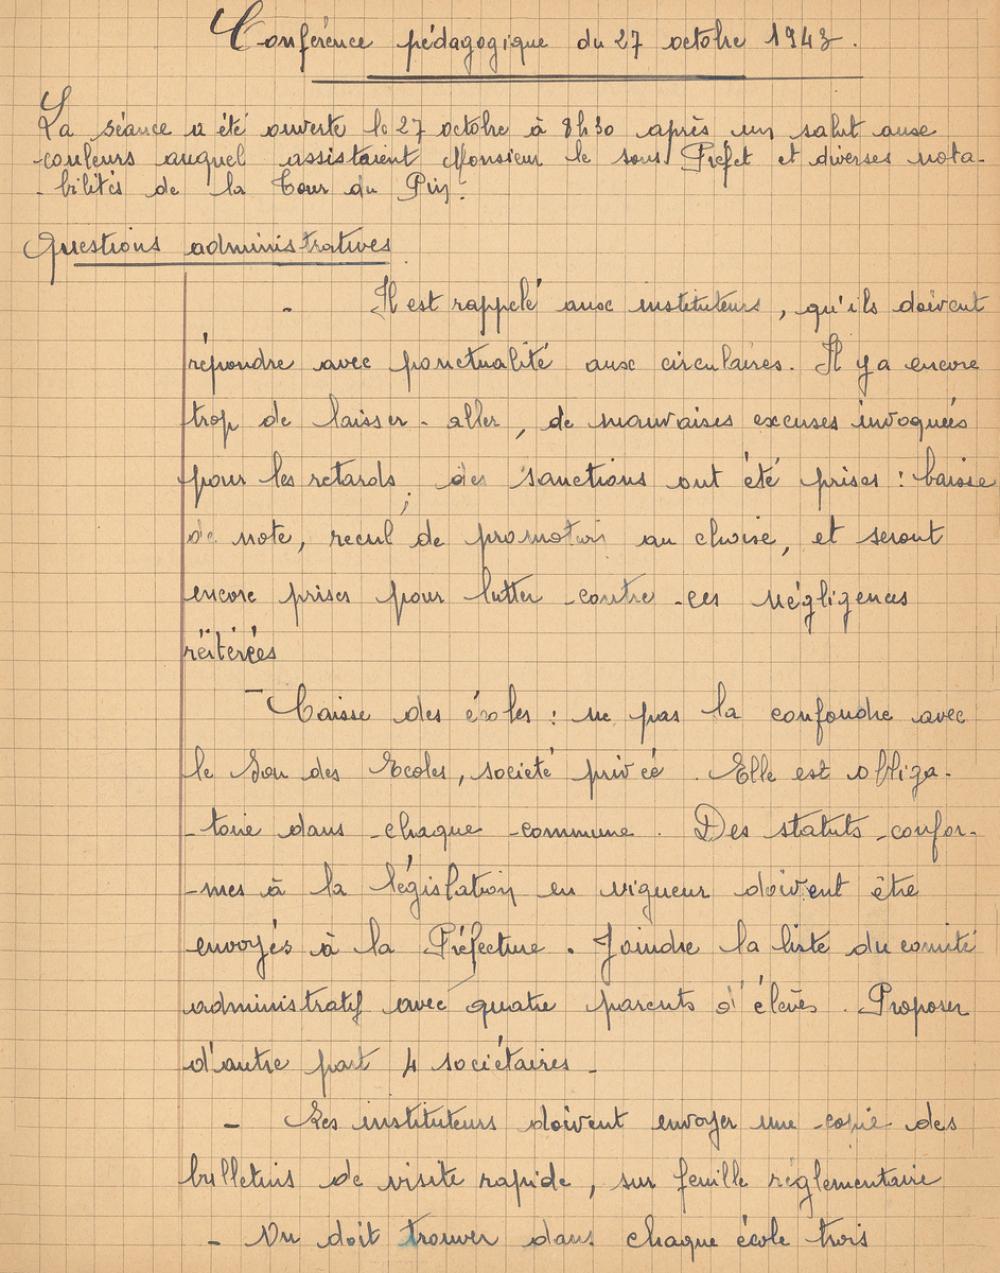 Conférence pédagogique du 27 octobre 1943.
La séance a été ouverte le 27 octobre à 8h30 après un salut aux
couleurs auquel assistaient Monsieur le sous Préfet et diverses nota-
-bilités de la Tour du Pin.
Questions administratives
- Il est rappelé aux instituteurs, qu'ils doivent
répondre avec ponctualité aux circulaires. Il y a encore
trop de laisser-aller, de mauvaises excuses invoquées
pour les retards; des sanctions ont été prises : baisse
de note, recul de promotion au choix, et seront
encore prises pour lutter contre ces négligences
réitérées
- Caisse des écoles : ne pas la confondre avec
le Sou des Ecoles, société privée. Elle est obliga-
-toire dans chaque commune. Des statuts confor-
-mes à la législation en vigueur doivent être
envoyés à la Préfecture. Joindre la liste du comité
administratif avec quatre parents d'élèves. Proposer
d'autre part 4 sociétaires -
- Les instituteurs doivent envoyer une copie des
bulletins de visite rapide, sur feuille réglementaire
- On doit trouver dans chaque école trois